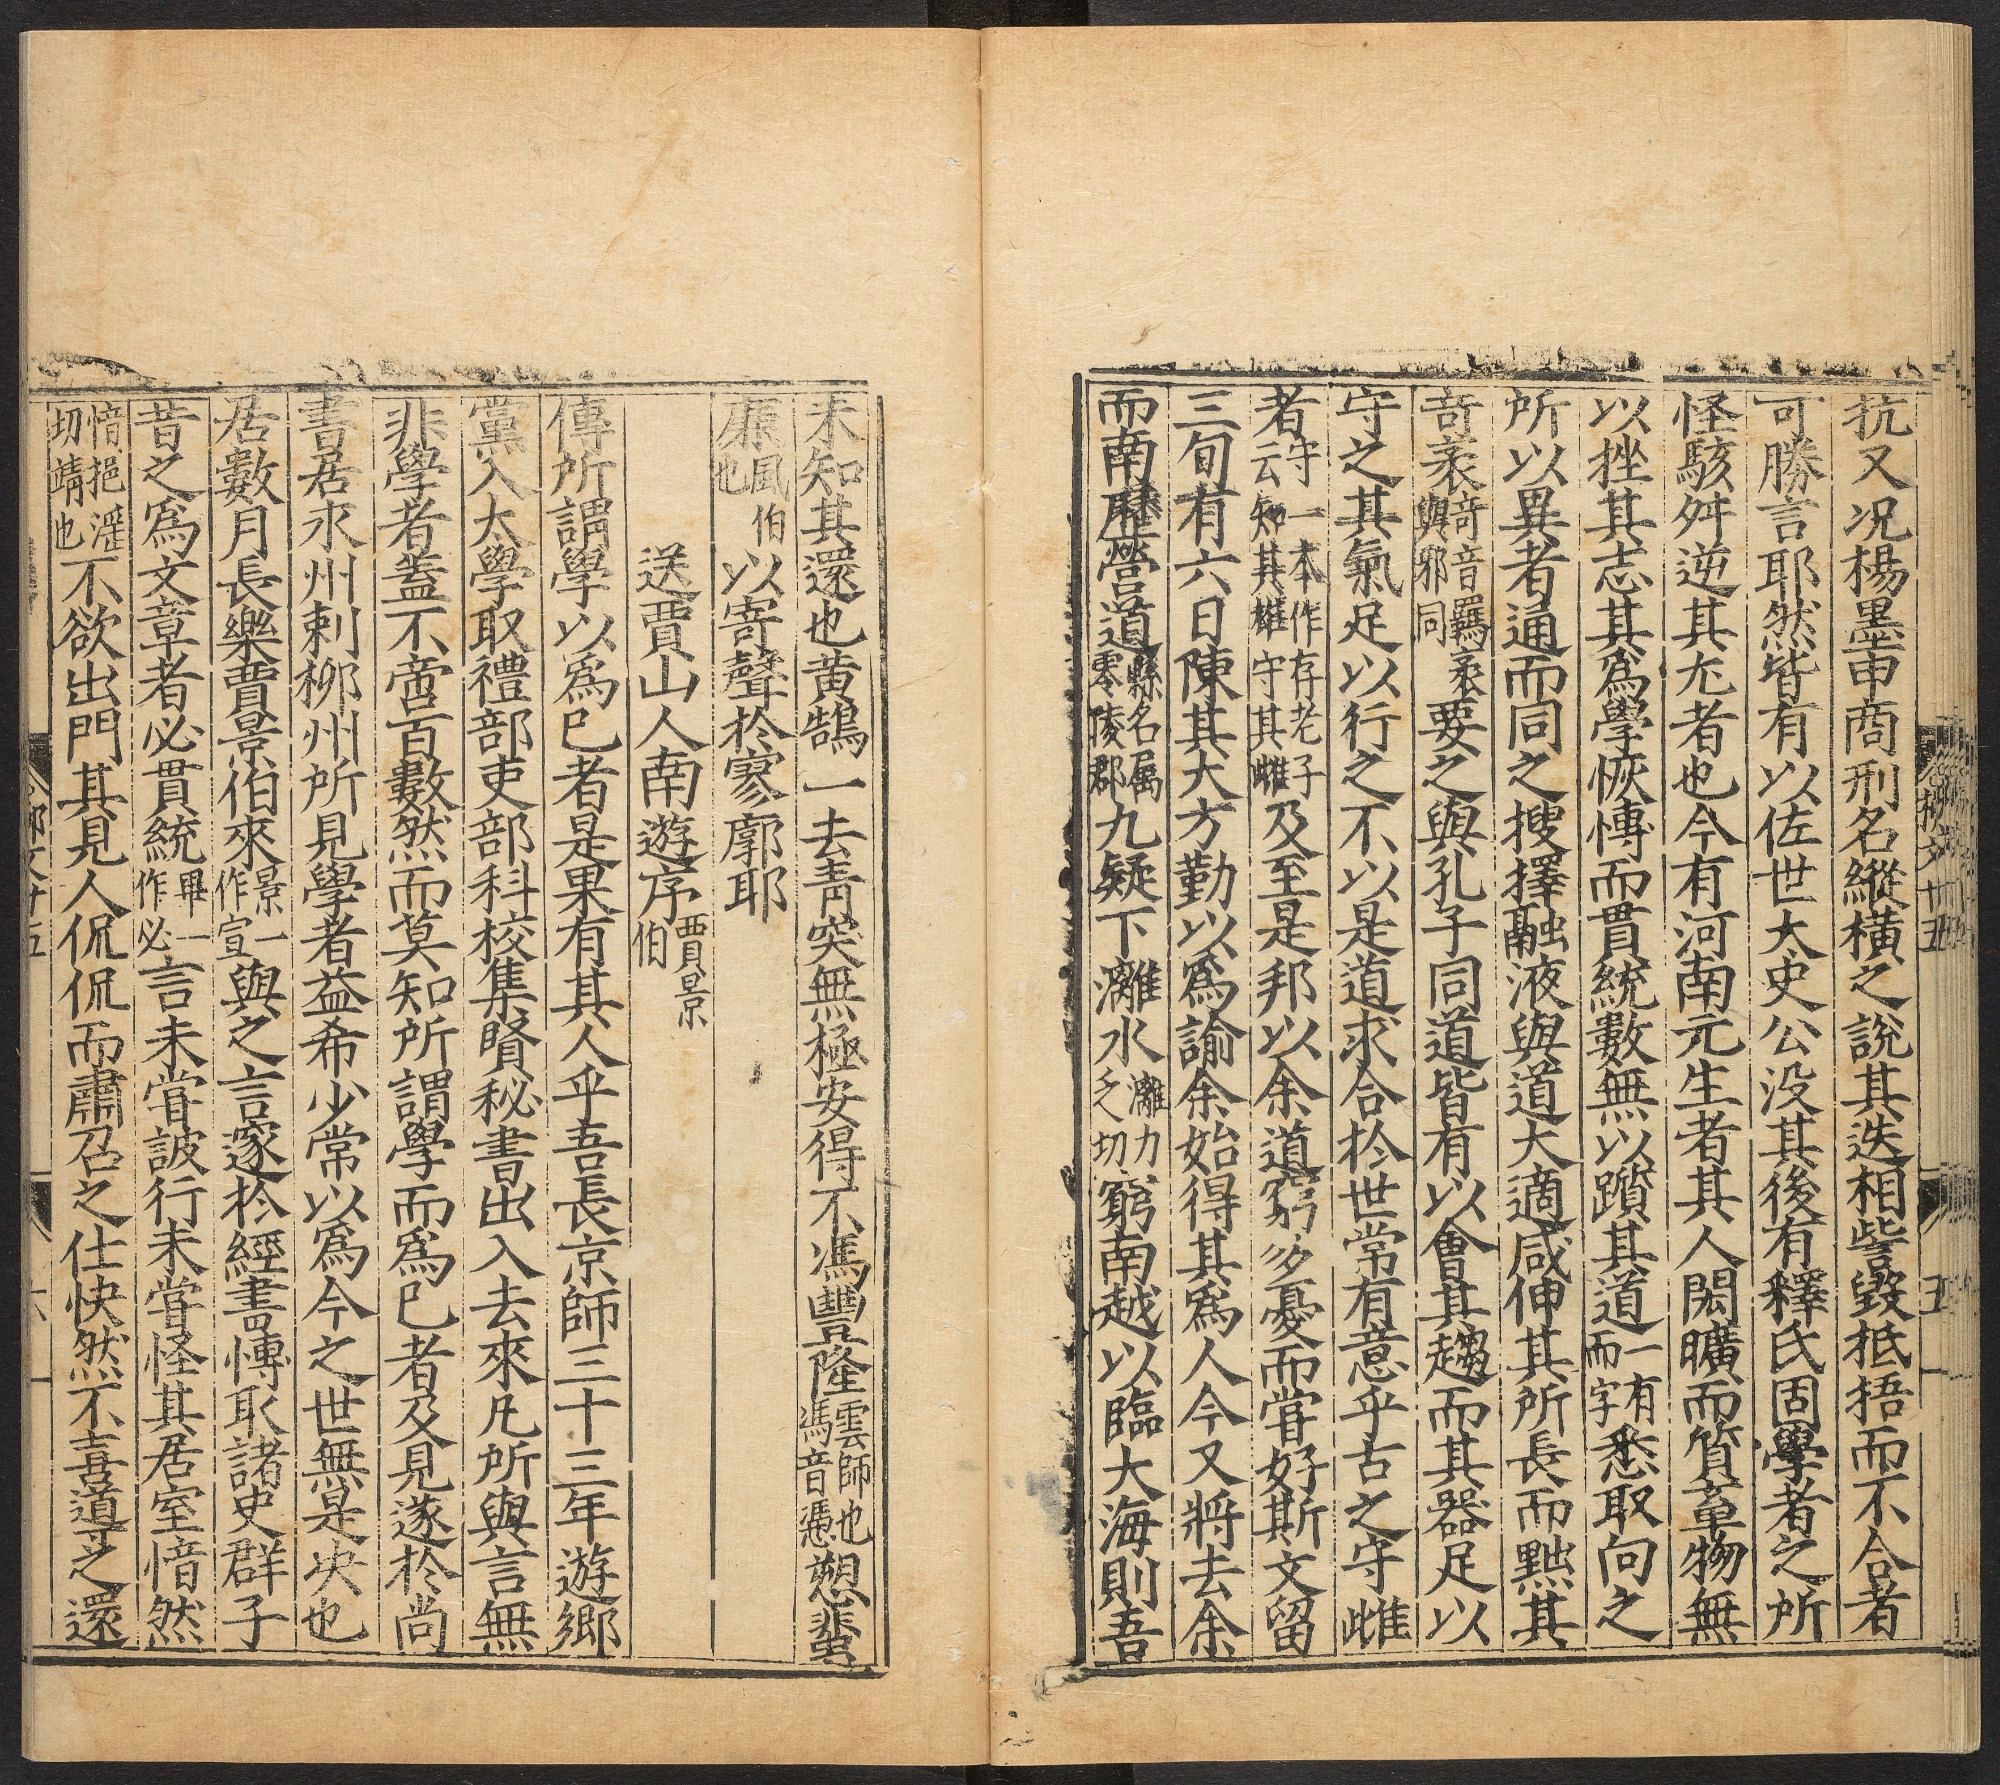 抗又况楊墨申商刑名縱橫之說其迭相訾毀抵捂而不合者
可勝言耶然皆有以佐世太史公没其後有釋氏固學者之所
怪駭舛逆其尤者也今有河南元生者其人閎曠而質直物無
以挫其志其爲學恢愽而貫統數無以躓其道一有而字悉取向之
所以異者通而同之搜擇融液與道大適咸伸其所長而黜其
奇衺奇音羈衺與邪同要之與孔子同道皆有以會其趨而其器足以
守之其氣足以行之不以是道求合於世常有意乎古之守雌
者守一本作存老子云知其雄守其雌及至是邦以余道窮多憂而甞好斯文留
三旬有六日陳其大方勤以爲諭余始得其爲人今又將去余
而南歷營道縣名属零陵郡九疑下灕水灕力之切窮南越以臨大海則吾
柳文十五
五
未知其還也黄鵠一去青冥無極安得不馮豐隆雲師也馮音憑愬蜚
廉風伯也以寄聲於寥廓耶
送賈山人南遊序賈景伯
傳所謂學以爲己者是果有其人乎吾長京師三十三年遊鄉
黨入太學取禮部吏部科校集賢秘書出入去來凡所與言無
非學者盖不啻百數然而莫知所謂學而爲己者及見逐於尚
書居永州刺柳州所見學者益希少常以爲今之世無是决也
居數月長樂賈景伯來景一作宣與之言邃於經書愽取諸史群子
昔之爲文章者必貫統畢一作必言未甞詖行未甞怪其居室愔然
愔挹淫切靖也不欲出門其見人侃侃而肅召之仕快然不喜導之還
柳文十五
六